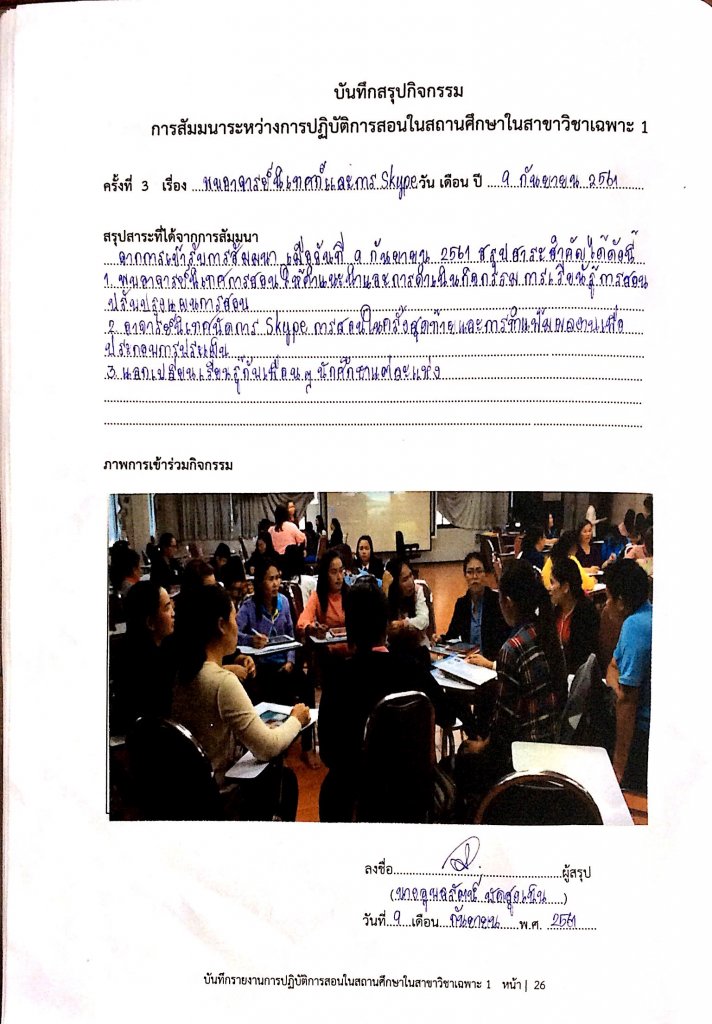 บันทึกสรุปกิจกรรม
การสัมมนาระหว่างการปฏิบัติการสอนในสถานศึกษาในสาขาวิชาเฉพาะ 1
ครั้งที่ 3 เรื่อง พบอาจารย์นิเทศก์และการ Skype วัน เดือน ปี 9 กันยายน 2561
สรุปสาระที่ได้จากการสัมมนา
จากการเข้ารับการสัมมนา เมื่อวันที่ 9 กันยายน 2561 สรุปสาระสำคัญได้ดังนี้
1. พบอาจารย์นิเทศการสอน ให้คำแนะนำและการดำเนินกิจกรรม การเรียนรู้ การสอน
ปรับปรุงแผนการสอน
2. อาจารย์นิเทศนัดการ Skype การสอนในครั้งสุดท้ายและการทำแฟ้มผลงานเพื่อ
ประกอบการประเมิน
3. แลกเปลี่ยนเรียนรู้กับเพื่อน ๆ นักศึกษาแต่ละแห่ง
ภาพการเข้าร่วมกิจกรรม
ลงชื่อ ผู้สรุป
วันที่ 9 เดือน กันยายน พ.ศ. 2561
บันทึกรายงานการปฏิบัติการสอนในสถานศึกษาในสาขาวิชาเฉพาะ 1 หน้า | 26